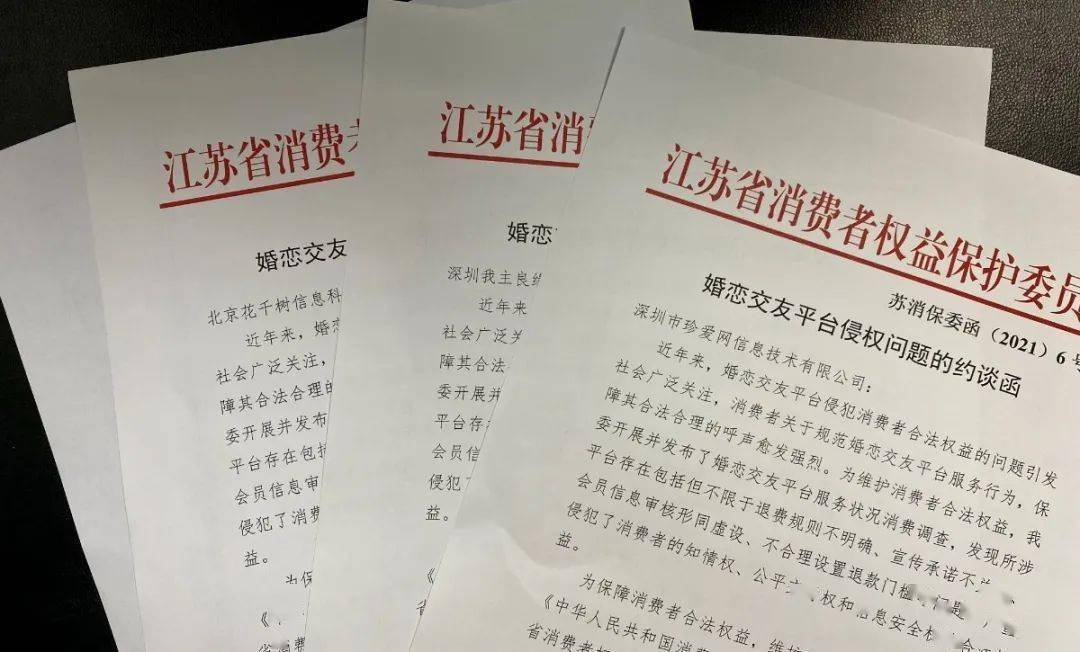 江苏省消费者
婚恋交友
北京花千树信息科
近年来，婚恋
社会广泛关注，
障其合法合理的
委开展并发布
平台存在包括
会员信息审
侵犯了消费
益。
为保
江苏省消
婚恋
深圳我主良缘
近年来
社会广泛关
障其合法
委开展并
平台存
会员信
侵犯了
益。
江苏省消费者权益保护委员
苏消保委函（2021）6号
婚恋交友平台侵权问题的约谈函
深圳市珍爱网信息技术有限公司：
近年来，婚恋交友平台侵犯消费者合法权益的问题引发
社会广泛关注，消费者关于规范婚恋交友平台服务行为，保
障其合法合理的呼声愈发强烈。为维护消费者合法权益，我
委开展并发布了婚恋交友平台服务状况消费调查，发现所涉
平台存在包括但不限于退费规则不明确、宣传承诺不
会员信息审核形同虚设、不合理设置退款门槛
侵犯了消费者的知情权、公平 权和 息安全权
益。
为保障消费者合法权益，维护
《中华人民共和国消
省消费者权